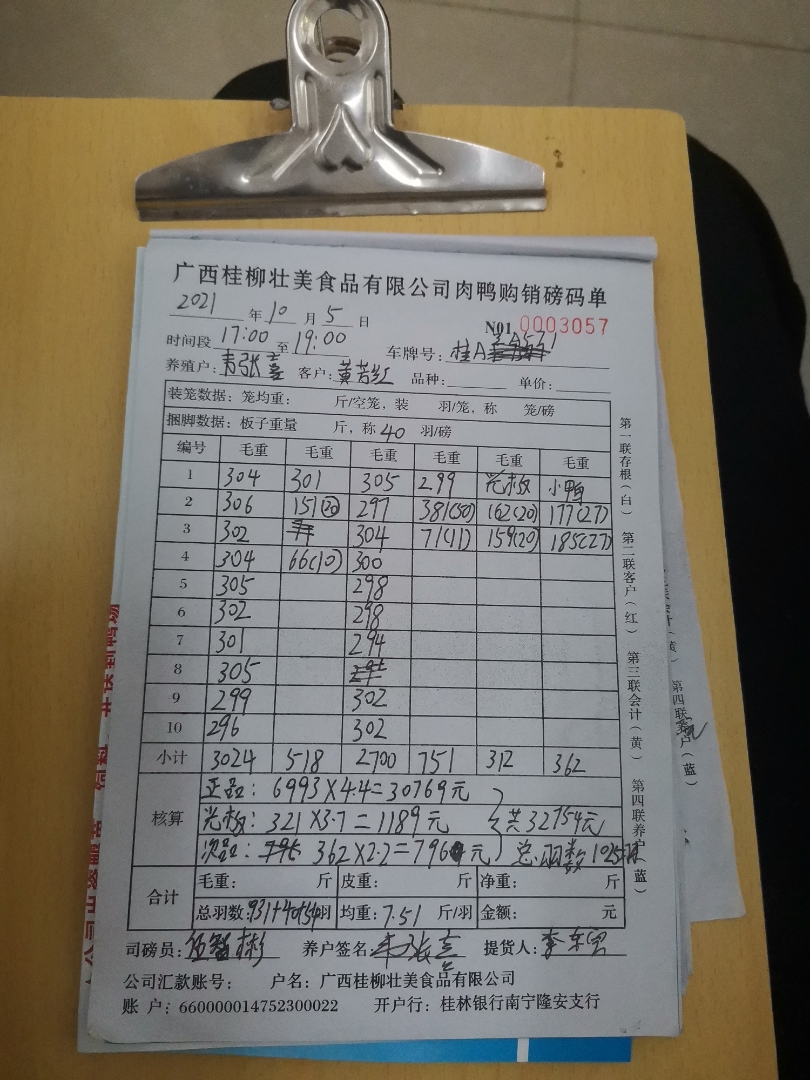 广西桂柳壮美食品有限公司肉鸭购销磅码单
2021 年 10 月 5 日 N01 0003057
时间段 17:00 至 19:00 车牌号: 桂A
养殖户: 韦张喜 客户: 黄 红 品种: 单价:
装笼数据: 笼均重: 斤/空笼, 装 羽/笼, 称 笼/磅
捆脚数据: 板子重量 斤, 称 40 羽/磅
编号 毛重 毛重 毛重 毛重 毛重 毛重
1 304 301 305 299 光板 小鸭
2 306 151(20) 297 381(50) 162(20) 177(27)
3 302 304 71(11) 159(20) 185(27)
4 304 66(10) 300
5 305 298
6 302 298
7 301 294
8 305
9 299 302
10 296 302
小计 3024 518 2700 751 312 362
核算
正品: 6993×4.4=30769元
光板: 321×3.7=1189元 共32754元
次品: 362×2.2=796元 总羽数1025羽
合计
毛重: 斤 皮重: 斤 净重: 斤
总羽数: 931+40+54羽 均重: 7.51 斤/羽 金额: 元
司磅员: 彬 养户签名: 韦张喜 提货人: 李
公司汇款账号: 户名: 广西桂柳壮美食品有限公司
账 户: 660000014752300022 开户行: 桂林银行南宁隆安支行
第一联存根(白)
第二联客户(红)
第三联会计(黄)
第四联养户(蓝)